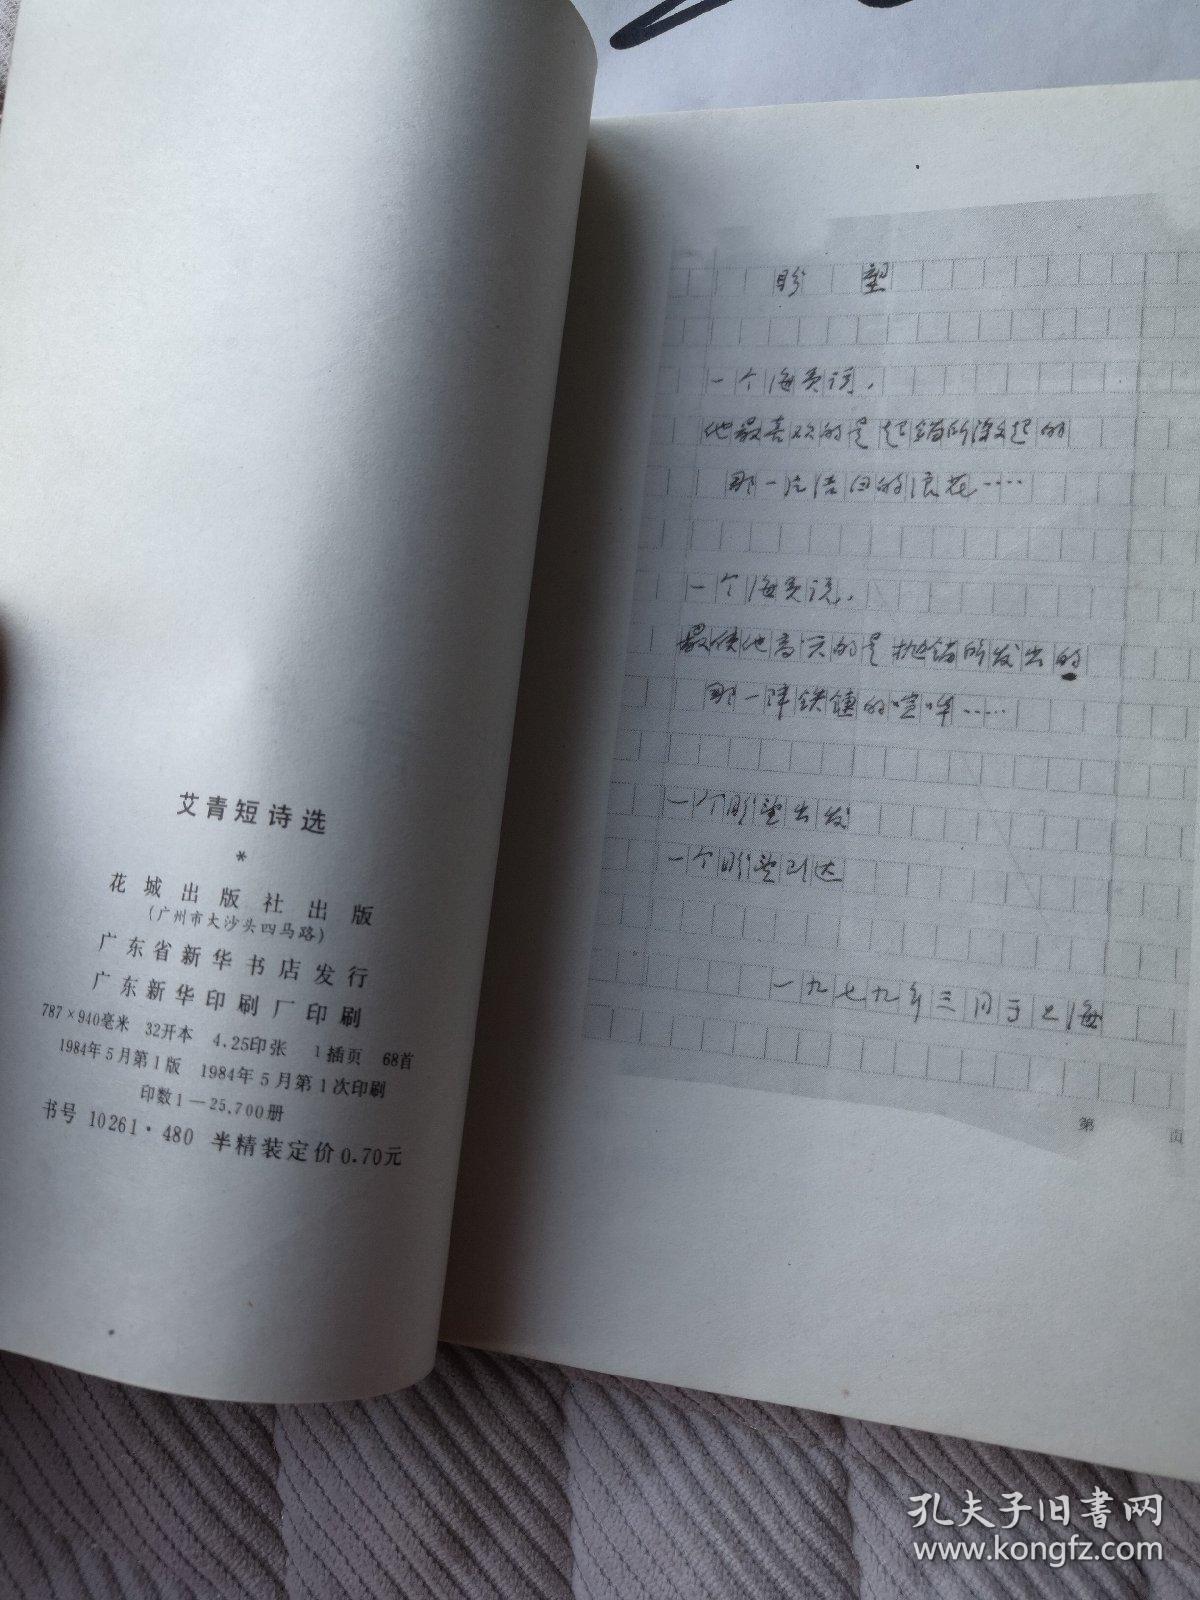 艾青短诗选
*
花城出版社出版
(广州市大沙头四马路)
广东省新华书店发行
广东新华印刷厂印刷
787×940毫米 32开本 4.25印张 1插页 68首
1984年5月第1版 1984年5月第1次印刷
印数1—25,700册
书号 10261·480 半精装定价0.70元
盼 望
一个海员说,
他最喜欢的是起锚所激起的
那一片洁白的浪花……
一个海员说,
最使他高兴的是抛锚所发出的
那一阵铁链的喧哗……
一个盼望出发
一个盼望到达
一九七九年三月于上海
第 页
孔夫子旧书网
www.kongfz.com